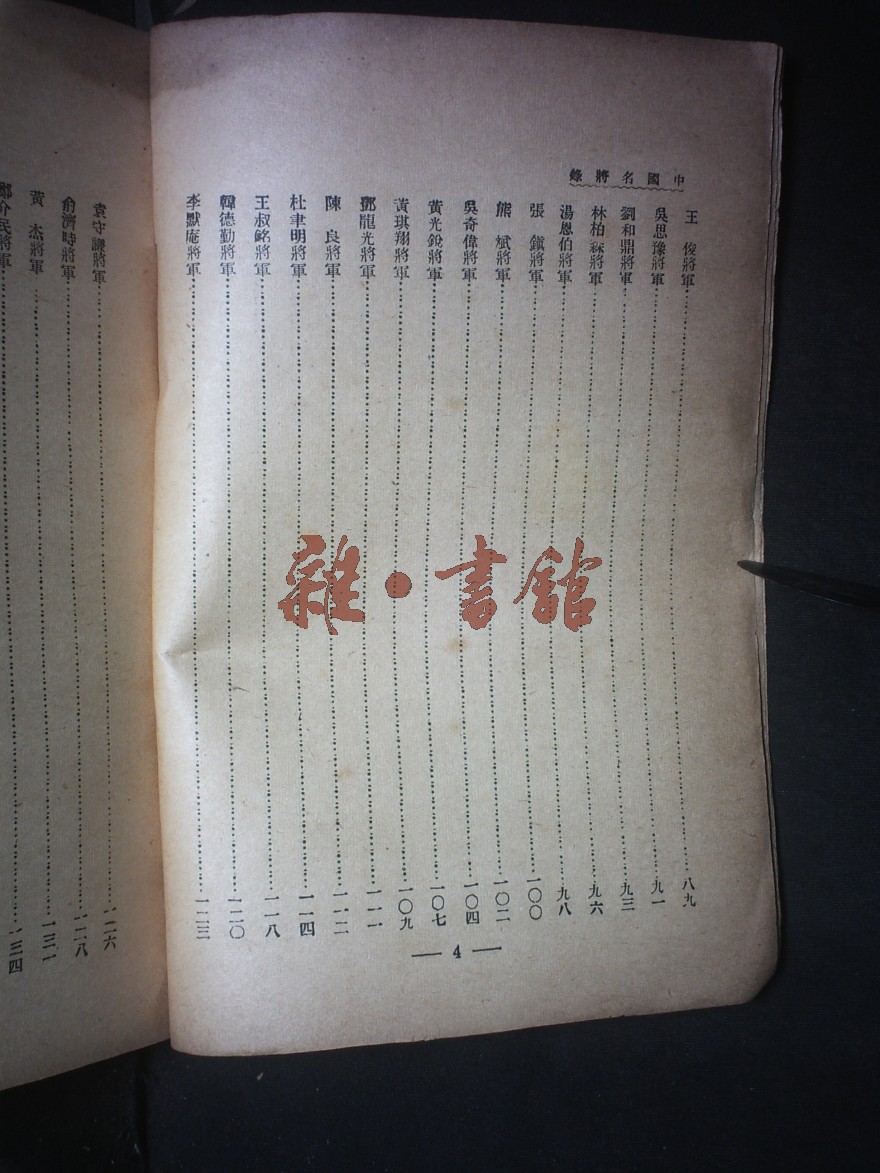 中國名將錄
王　俊將軍……八九
吳思豫將軍……九一
劉和鼎將軍……九三
林柏森將軍……九六
湯恩伯將軍……九八
張　鎭將軍……一〇〇
熊　斌將軍……一〇二
吳奇偉將軍……一〇四
黃光銳將軍……一〇七
黃琪翔將軍……一〇九
鄧龍光將軍……一一一
陳　良將軍……一一二
杜聿明將軍……一一四
王叔銘將軍……一一八
韓德勤將軍……一二〇
李默庵將軍……一二三
— 4 —
袁守謙將軍……一二六
俞濟時將軍……一二八
黃　杰將軍……一三一
鄭介民將軍……一三四
雜·書館